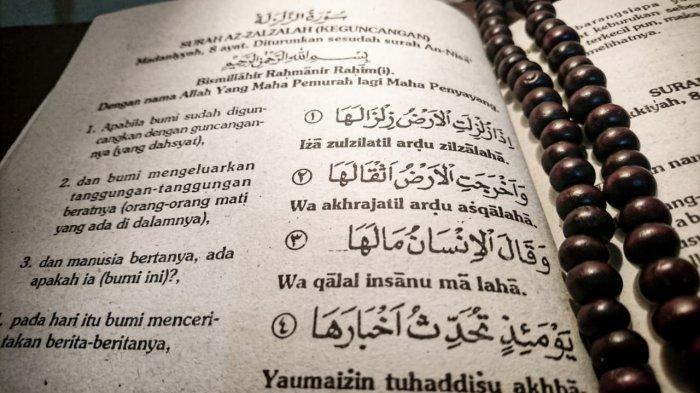 سُوْرَةُ الزَّلْزَلَةِ
SURAH AZ-ZALZALAH (KEGUNCANGAN)
Madaniyyah, 8 ayat. Diturunkan sesudah surah An-Nisā'
بِسْمِ اللهِ الرَّحْمٰنِ الرَّحِيْمِ
Bismillāhir Raḥmānir Raḥīm(i).
Dengan nama Allah Yang Maha Pemurah lagi Maha Penyayang.
1. Apabila bumi sudah digun-
cangkan dengan guncangan-
nya (yang dahsyat),
١ اِذَا زُلْزِلَتِ الْاَرْضُ زِلْزَالَهَا
Iżā zulzilatil arḍu zilzālahā.
2. dan bumi mengeluarkan
tanggungan-tanggungan
beratnya (orang-orang mati
yang ada di dalamnya),
٢ وَاَخْرَجَتِ الْاَرْضُ اَثْقَالَهَا
Wa akhrajatil arḍu aṡqālahā.
3. dan manusia bertanya, ada
apakah ia (bumi ini)?,
٣ وَقَالَ الْاِنْسَانُ مَالَهَا
Wa qālal insānu mā lahā.
. pada hari itu bumi menceri-
takan berita-beritanya,
٤ يَوْمَئِذٍ تُحَدِّثُ اَخْبَارَهَا
Yaumaiżin tuhaddiṡu akhbā-
barangsiapa
keburukan
terkecil pun,
melihatnya.
SURA